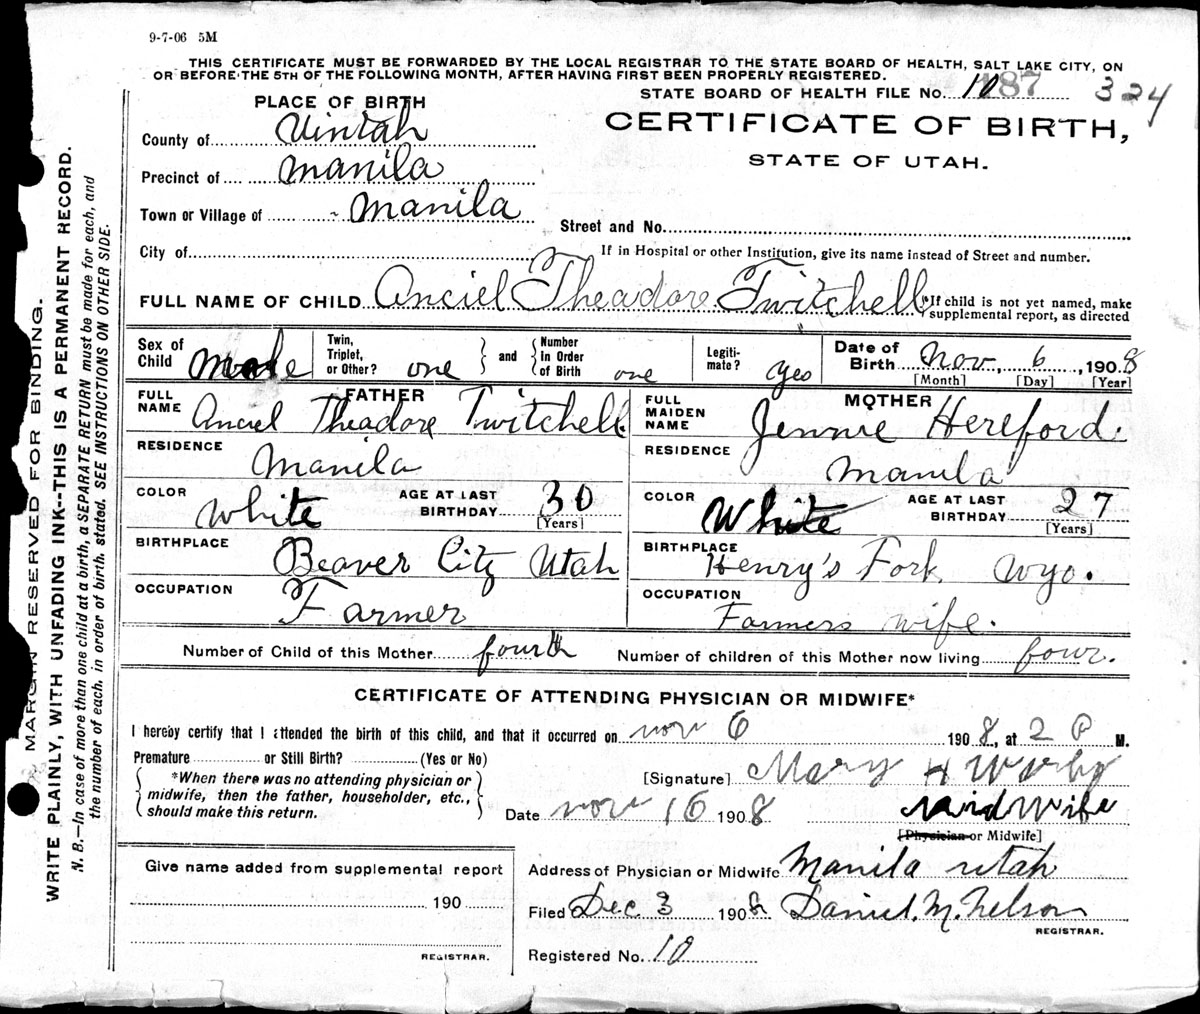 9-7-06 5M
THIS CERTIFICATE MUST BE FORWARDED BY THE LOCAL REGISTRAR TO THE STATE BOARD OF HEALTH, SALT LAKE CITY, ON
OR BEFORE THE 5TH OF THE FOLLOWING MONTH, AFTER HAVING FIRST BEEN PROPERLY REGISTERED.
STATE BOARD OF HEALTH FILE No. 10 87 324
PLACE OF BIRTH
CERTIFICATE OF BIRTH,
STATE OF UTAH.
County of Uintah
Precinct of Manila
Town or Village of Manila
Street and No.
City of
If in Hospital or other Institution, give its name instead of Street and number.
FULL NAME OF CHILD Anciel Theadore Twitchell
*If child is not yet named, make supplemental report, as directed
Sex of Child Male
Twin, Triplet, or Other? one
and
Number In Order of Birth one
Legitimate? yes
Date of Birth Nov 6, 1908
[Month] [Day] [Year]
FATHER
FULL NAME Anciel Theadore Twitchell
RESIDENCE Manila
COLOR White
AGE AT LAST BIRTHDAY 30
[Years]
BIRTHPLACE Beaver City Utah
OCCUPATION Farmer
MOTHER
FULL MAIDEN NAME Jennie Hereford
RESIDENCE Manila
COLOR White
AGE AT LAST BIRTHDAY 27
[Years]
BIRTHPLACE Henry's Fork Wyo.
OCCUPATION Farmers wife.
Number of Child of this Mother fourth
Number of children of this Mother now living four.
CERTIFICATE OF ATTENDING PHYSICIAN OR MIDWIFE*
I hereby certify that I attended the birth of this child, and that it occurred on nov 6 1908, at 2 P M.
Premature or Still Birth? (Yes or No)
*When there was no attending physician or
midwife, then the father, householder, etc.,
should make this return.
[Signature] Mary H
Date nov 16 1908 midwife
[Physician or Midwife]
Give name added from supplemental report
190
REGISTRAR.
Address of Physician or Midwife Manila utah
Filed Dec 3 1908 Daniel. M. Nelson
REGISTRAR.
Registered No. 10
MARGIN RESERVED FOR BINDING.
WRITE PLAINLY, WITH UNFADING INK--THIS IS A PERMANENT RECORD.
N. B.—In case of more than one child at a birth, a SEPARATE RETURN must be made for each, and
the number of each, in order of birth, stated. SEE INSTRUCTIONS ON OTHER SIDE.